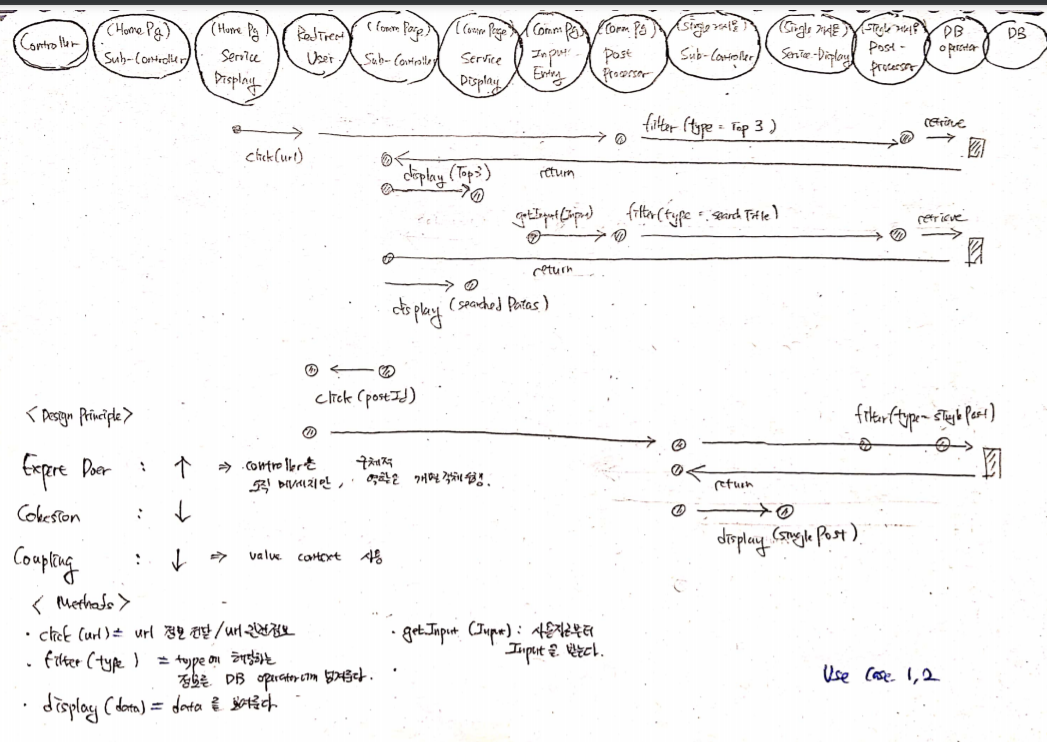 Controller
(Home Pg)
Sub-Controller
(Home Pg)
Service
Display
Redirect
User
(Comm Page)
Sub-Controller
(Comm Page)
Service
Display
(Comm Pg)
Input
Entry
(Comm Pg)
Post
Processor
(Single 게시물)
Sub-Controller
(Single 게시물)
Service-Display
(Single 게시물)
Post-
Processor
DB
operator
DB
click(url)
filter (type = Top 3)
retrive
return
display (Top3)
getInput(Input)
filter(type = searchTitle)
retrieve
return
display (searched Datas)
click (postId)
filter(type = single Post)
return
display (single Post)
<Design Principle>
Expert Doer : ↑ ⇒ controller는 구체적
오직 메시지만, 역할은 개별 객체 수행.
Cohesion : ↓
Coupling : ↓ ⇒ value context 사용
<Methods>
· click (url) = url 정보 전달 / url
· filter (type) = type에 해당하는
정보를 DB operator에 넘겨준다.
· display (data) = data 를 보여준다
· getInput (Input) : 사용자로부터
Input을 받는다.
·
Use Case 1,2